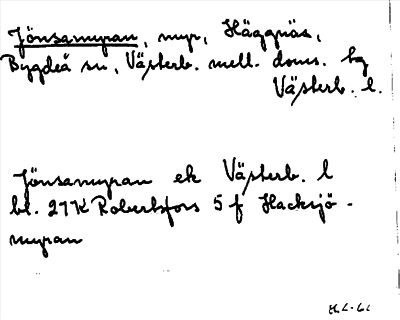 Jönsamyran, myr, Häggnäs,
Bygdeå sn, Västerb. mell. doms. hg
Västerb. l.
Jönsamyran ek Västerb. l
bl. 21K Robertsfors 5 f Hacksjö-
myran